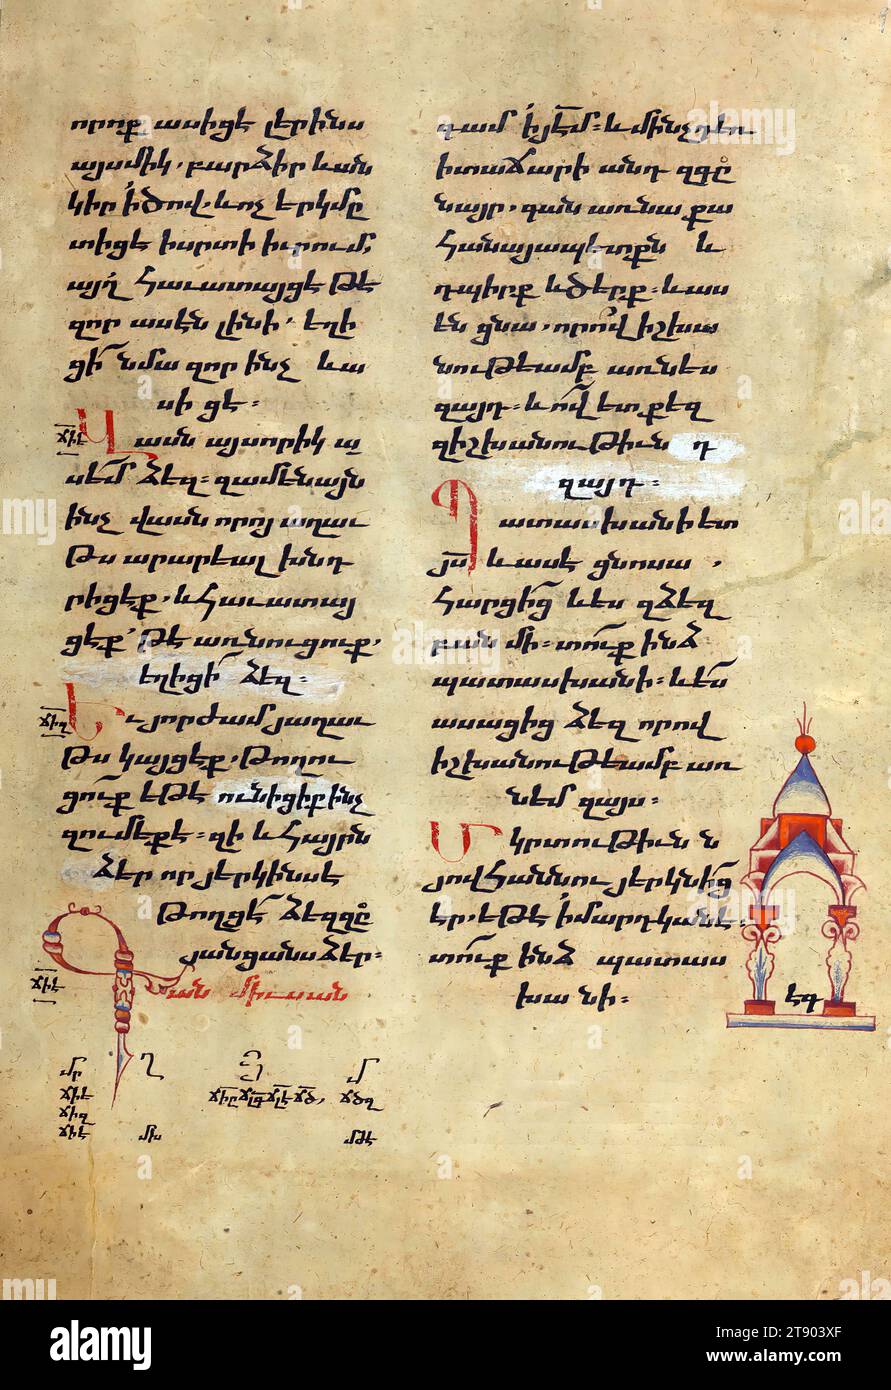 որոք ասիցէ լերինս
այսմիկ. բարձիր և ան
կիր ի ծով. և ոչ երկմը
տիցէ ի սրտի իւրում,
այղ հաւատայցէ թէ
զոր ասէն լինի. եղի
ցի նմա զոր ինչ և ա
սի ցէ։
ճիե Վասն այսորիկ ա
սեմ ձեզ։ զամենայն
ինչ վասն որոյ աղաւ
թս արարեալ խնդ
րիցէք. և հաւատայ
ցէք՝ թէ առնուցուք.
եղիցի ձեզ։
ճիզ Եւ յորժամ յաղաւ
թս կայցէք. թողու
ցուք եթէ ունիցիք ինչ
զումեքէ։ զի և հայրն
ձեր որ յերկինսէ
թողցէ ձեզ զը
յանցանս ձեր։
ճիէ Գան միւսան
մր
ճիե
ճիզ
ճիէ
ղ
մ
ճծզ
մթէ
գամ ի յէմ։ և մինչդեռ
ի տաճարի անդ զգը
նայր. գան առ նա քա
հանայապետքն և
դպիրք և ծերք։ և աս
են ցնա. որով իշխա
նութեամբ առնես
զայդ։ և ո՛վ ետ քեզ
զիշխանութիւն դ
զայդ։
Պատասխանի ետ
յս և ասէ ցնոսա,
հարցից և ես զձեզ
բան մի։ տուք ինձ
պատասխանի։ և ես
ասացից ձեզ որով
իշխանութեամբ առ
նեմ զայս։
Մկրտութիւն ն
յովհաննու յերկնից
էր. եթէ ի մարդկանէ։
տուք ինձ պատաս
խա նի։
էգ
alamy
Image ID: 2T903XF
www.alamy.com